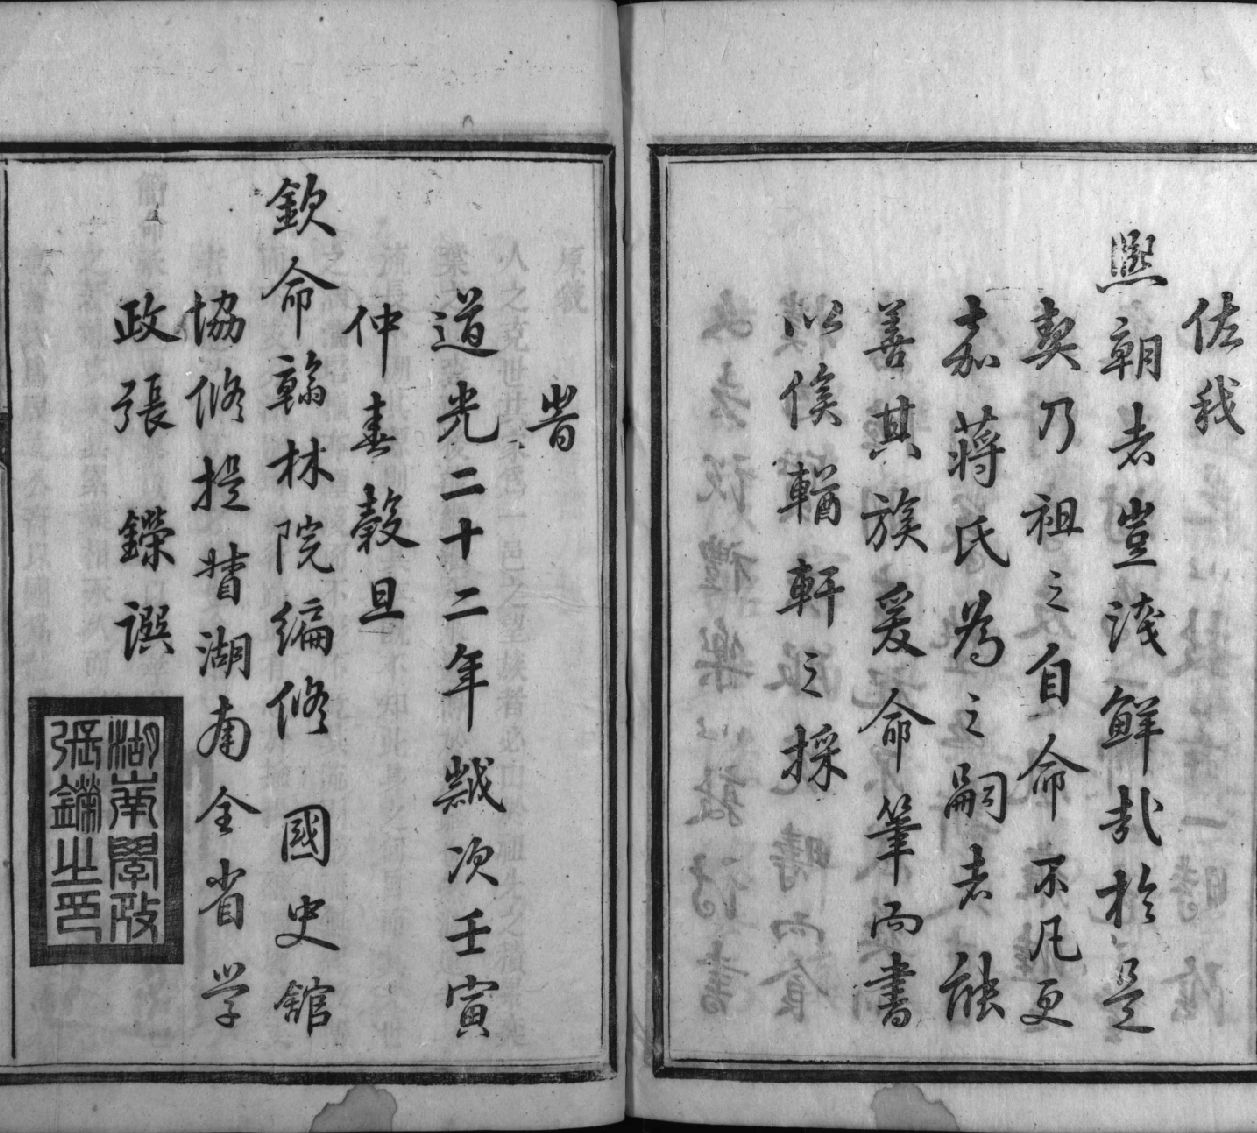 佐我
熙朝者豈淺鮮哉於是
契乃祖之自命不凡更
嘉蔣氏為之嗣者能
善其族爰命筆而書
以俟輶軒之採
旹
道光二十二年歲次壬寅
仲春穀旦
欽命翰林院編修 國史館
協修提督湖南全省学
政張 鑅譔
湖南學政
張鑅之印